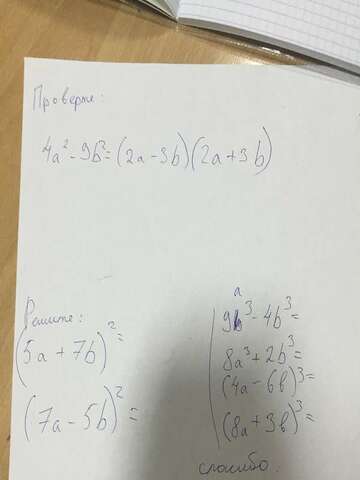 Проверьте:
4a² - 9b² = (2a - 3b)(2a + 3b)
Решите:
(5a + 7b)² =
(7a - 5b)² =
9a³ - 4b³ =
8a³ + 2b³ =
(4a - 6b)³ =
(8a + 3b)³ =
спасибо.